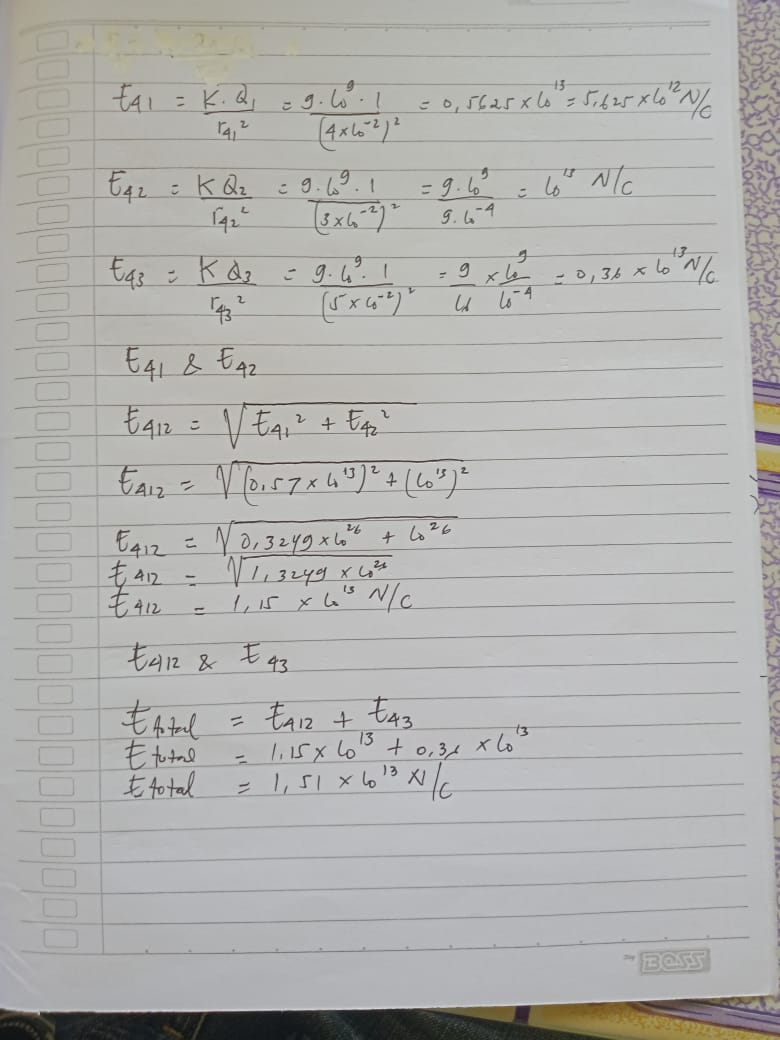 E₄₁ = K·Q₁/r₄₁² = 9·10⁹·1/(4×10⁻²)² = 0,5625 × 10¹³ = 5,625 × 10¹² N/C
E₄₂ = K Q₂/r₄₂² = 9·10⁹·1/(3×10⁻²)² = 9·10⁹/9·10⁻⁴ = 10¹³ N/C
E₄₃ = K Q₃/r₄₃² = 9·10⁹·1/(5×10⁻²)² = 9/25 × 10⁹/10⁻⁴ = 0,36 × 10¹³ N/C
E₄₁ & E₄₂
E₄₁₂ = √(E₄₁² + E₄₂²)
E₄₁₂ = √((0,57 × 10¹³)² + (10¹³)²)
E₄₁₂ = √(0,3249 × 10²⁶ + 10²⁶)
E₄₁₂ = √(1,3249 × 10²⁶)
E₄₁₂ = 1,15 × 10¹³ N/C
E₄₁₂ & E₄₃
E total = E₄₁₂ + E₄₃
E total = 1,15 × 10¹³ + 0,36 × 10¹³
E total = 1,51 × 10¹³ N/C
BOSS